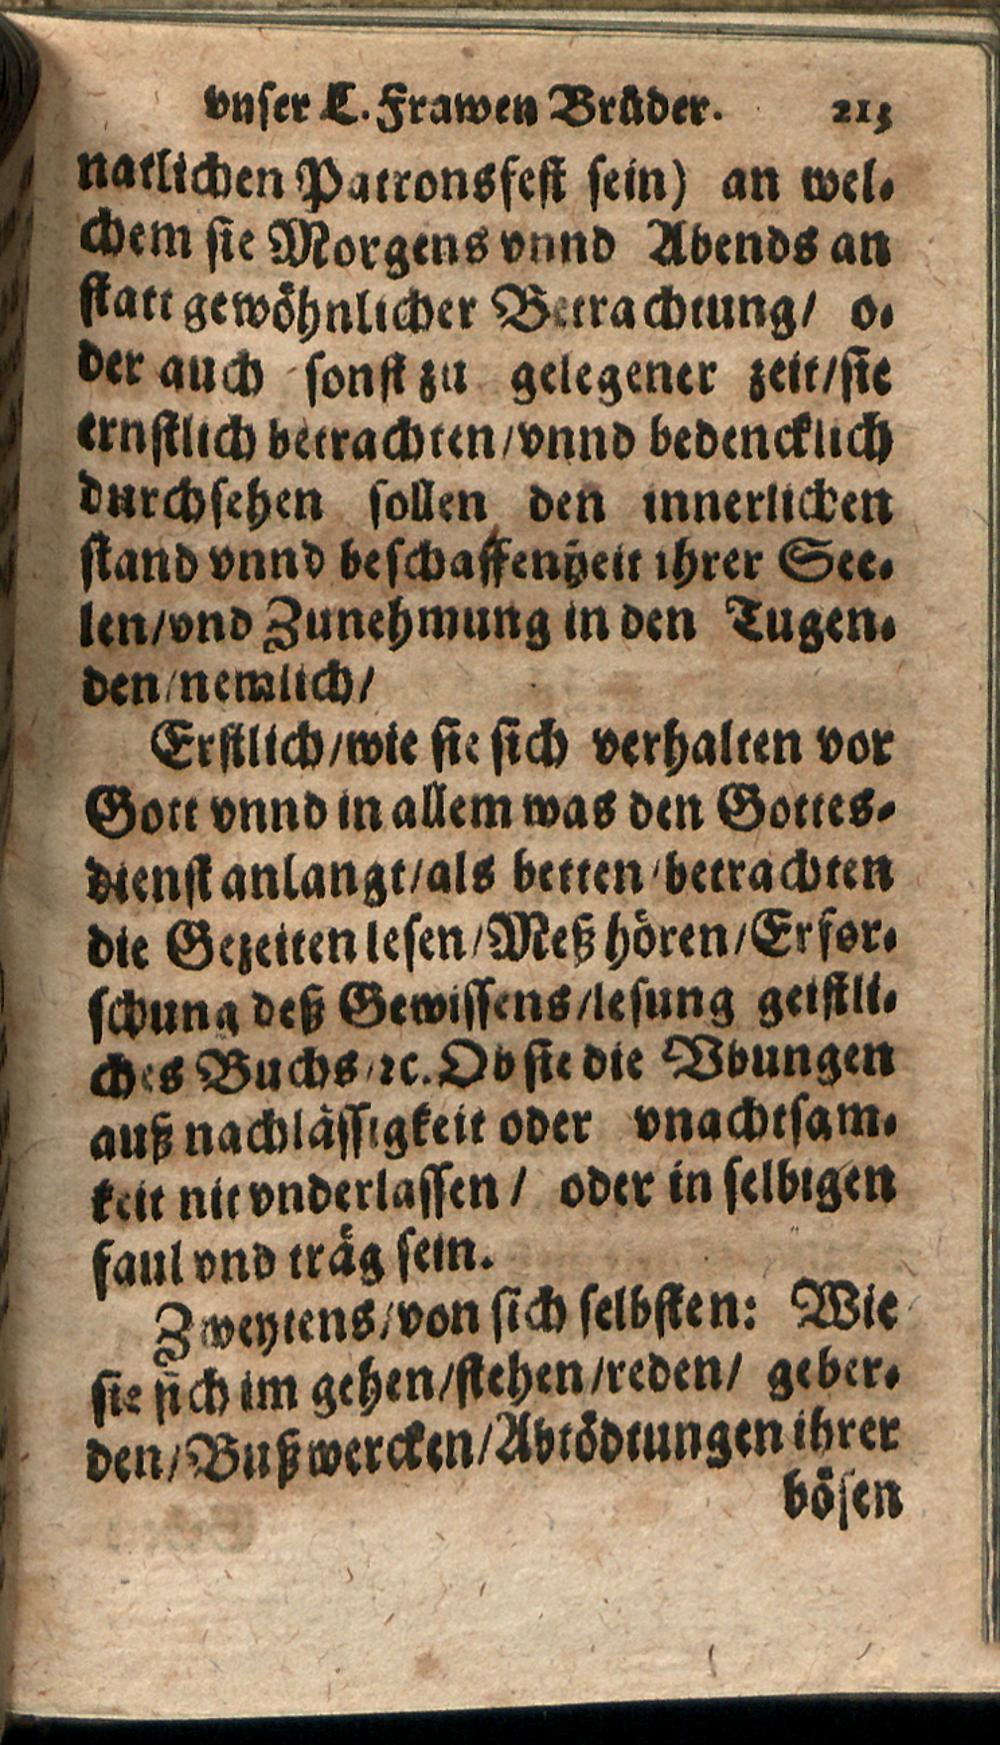 vnser L. Frawen Brüder. 215
natlichen Patronsfest sein) an wel-
chem sie Morgens vnnd Abends an
statt gewöhnlicher Betrachtung/ o-
der auch sonst zu gelegener zeit/sie
ernstlich betrachten/vnnd bedencklich
durchsehen sollen den innerlichen
stand vnnd beschaffenheit ihrer See-
len/vnd Zunehmung in den Tugen-
den/nemlich/
Erstlich/wie sie sich verhalten vor
Gott vnnd in allem was den Gottes-
dienst anlangt/als betten/betrachten
die Gezeiten lesen/Meß hören/Erfor-
schung deß Gewissens/lesung geistli-
ches Buchs/ꝛc. Ob sie die Vbungen
auß nachlässigkeit oder vnachtsam-
keit nit vnderlassen/ oder in selbigen
faul vnd träg sein.
Zweytens/von sich selbsten: Wie
sie sich im gehen/stehen/reden/ geber-
den/Bußwercken/Abtödtungen ihrer
bösen